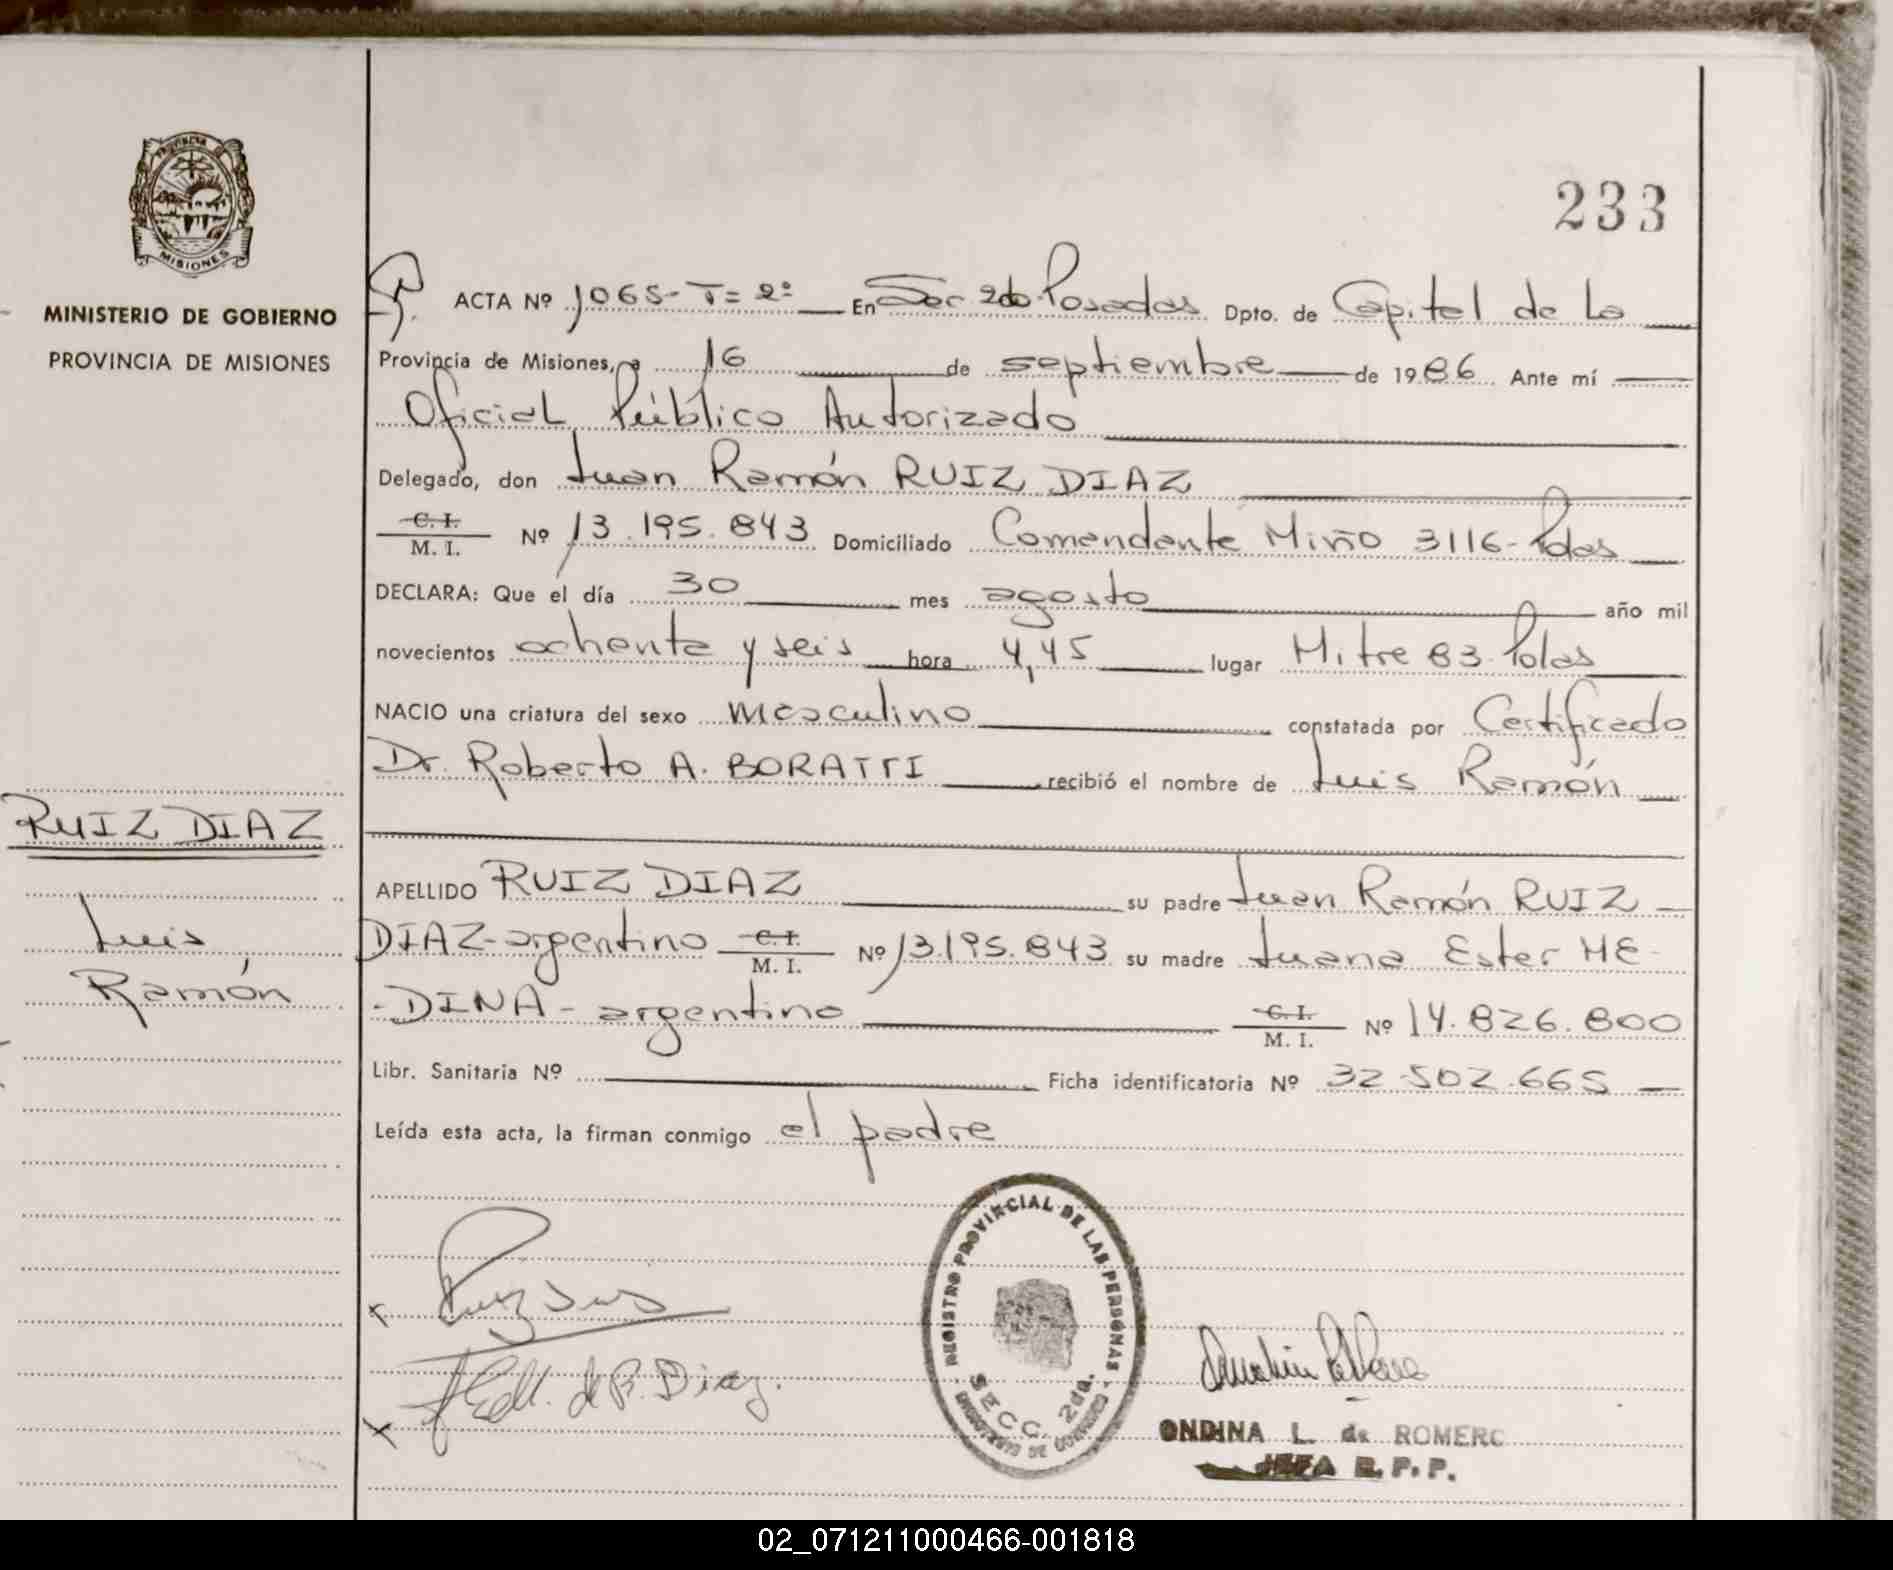 PROVINCIA DE
MISIONES
MINISTERIO DE GOBIERNO
PROVINCIA DE MISIONES
RUIZ DIAZ
Luis
Ramón
233
ACTA Nº 1065-T=2º En Sec 2da Posadas Dpto. de Capital de La
Provincia de Misiones, a 16 de septiembre de 1986 Ante mí
Oficial Público Autorizado
Delegado, don Juan Ramón RUIZ DIAZ
C. I.
M. I. Nº 13.195.843 Domiciliado Comandante Miño 3116-Pdas
DECLARA: Que el día 30 mes agosto año mil
novecientos ochenta y seis hora 4,45 lugar Mitre 83-Pdas
NACIO una criatura del sexo masculino constatada por Certificado
Dr. Roberto A. BORATTI recibió el nombre de Luis Ramón
APELLIDO RUIZ DIAZ su padre Juan Ramón RUIZ
DIAZ-argentino C. I. M. I. Nº 13.195.843 su madre Juana Ester ME-
-DINA- argentina C. I. M. I. Nº 14.826.800
Libr. Sanitaria Nº Ficha identificatoria Nº 32.502.665
Leída esta acta, la firman conmigo el padre
REGISTRO PROVINCIAL DE LAS PERSONAS
SECC. 2da.
MINISTERIO DE GOBIERNO
de R. Diaz.
ONDINA L. de ROMERO
JEFA R. P. P.
02_071211000466-001818